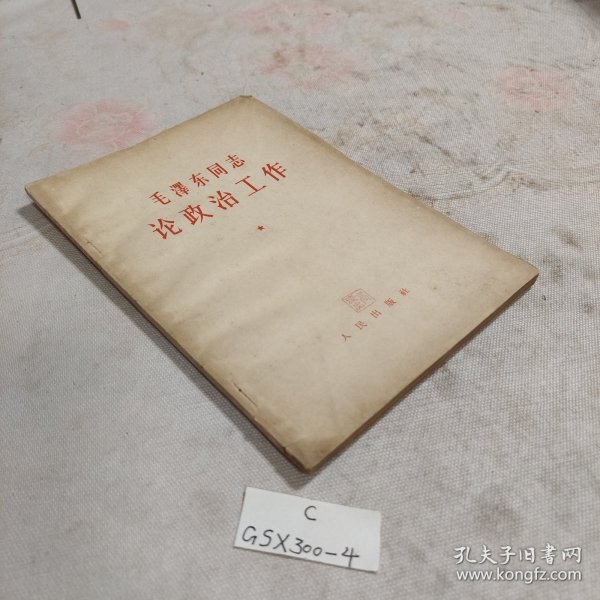 毛澤东同志
论政治工作
★
人民出版社
C
GSX300-4
孔夫子旧书网
www.kongfz.com